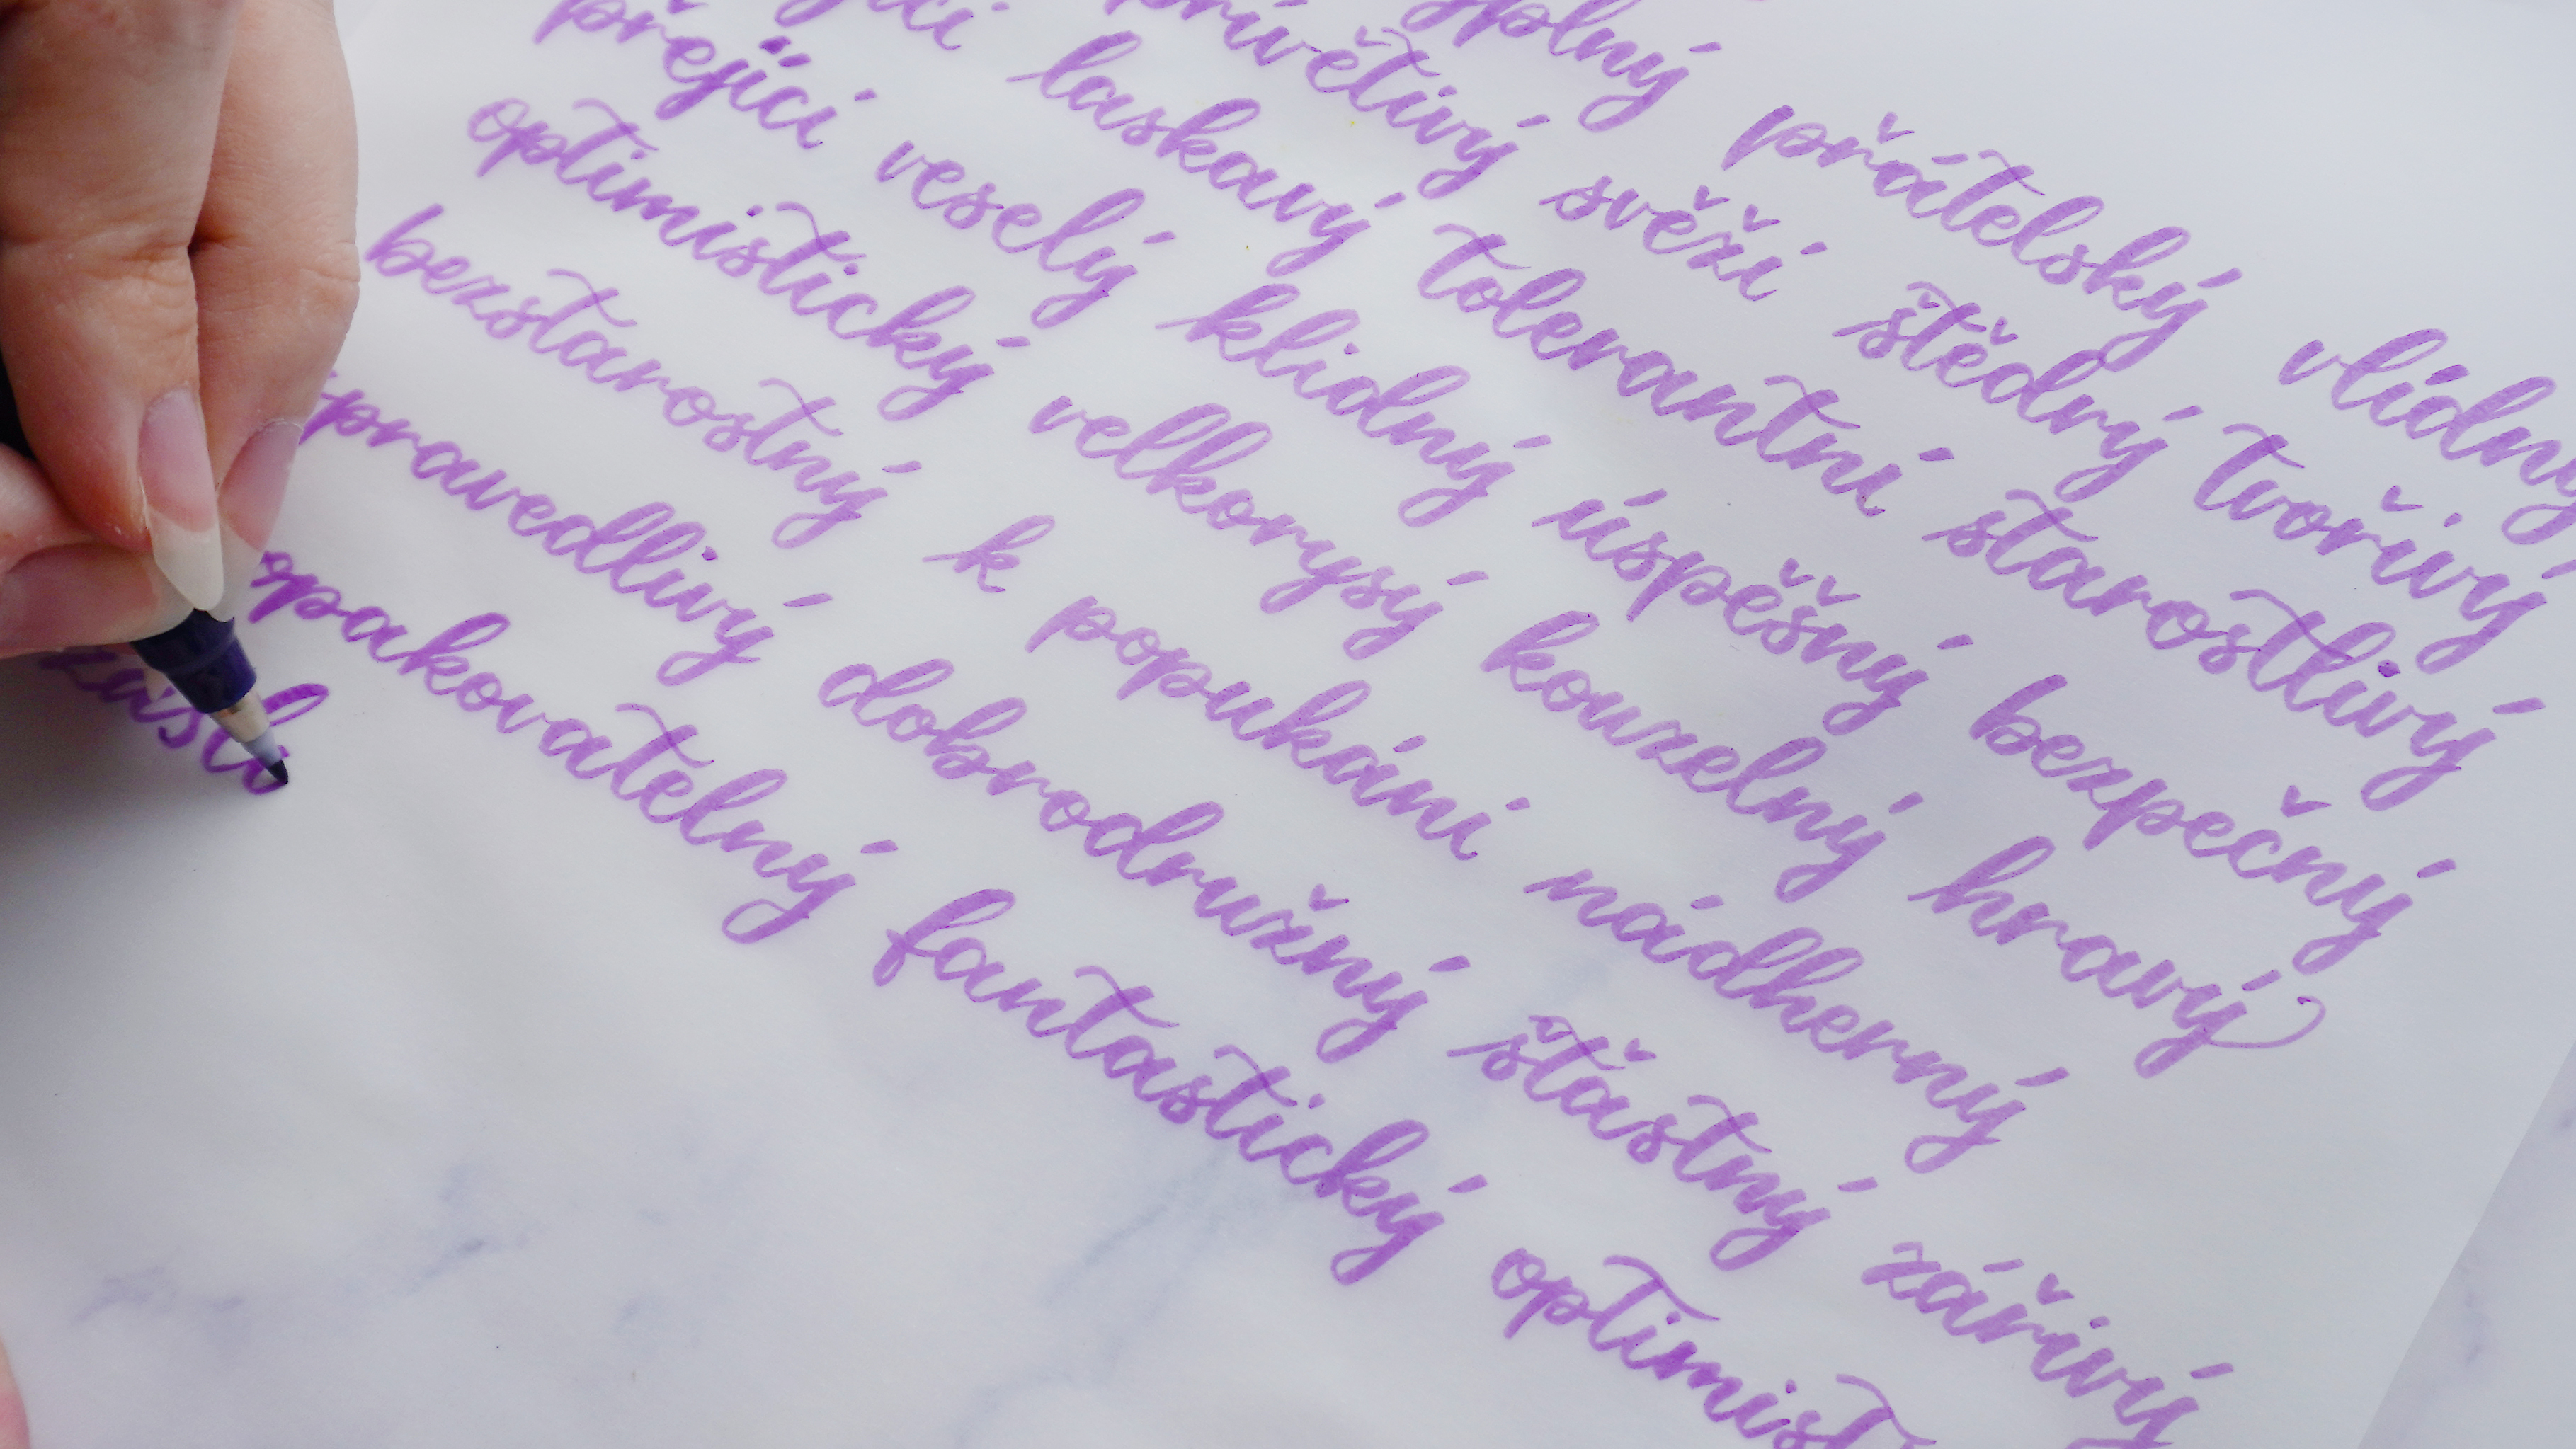 přátelský vlídný
přívětivý svěží štědrý tvořivý
laskavý tolerantní starostlivý
přející veselý klidný úspěšný bezpečný
optimistický velkorysý kouzelný hravý
bezstarostný k popukání nádherný
spravedlivý dobrodružný šťastný zářivý
opakovatelný fantastický optimist